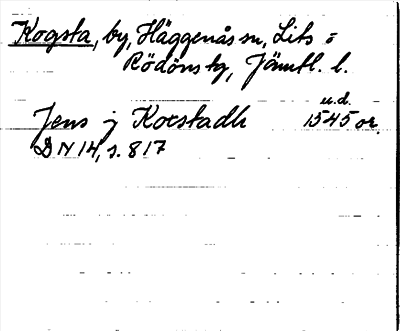 Kogsta, by, Häggenås sn, Lits o
Rödöns tg, Jämtl. l.
u.d.
Jens j Kocstadh 1545 or.
DN 14, s. 817